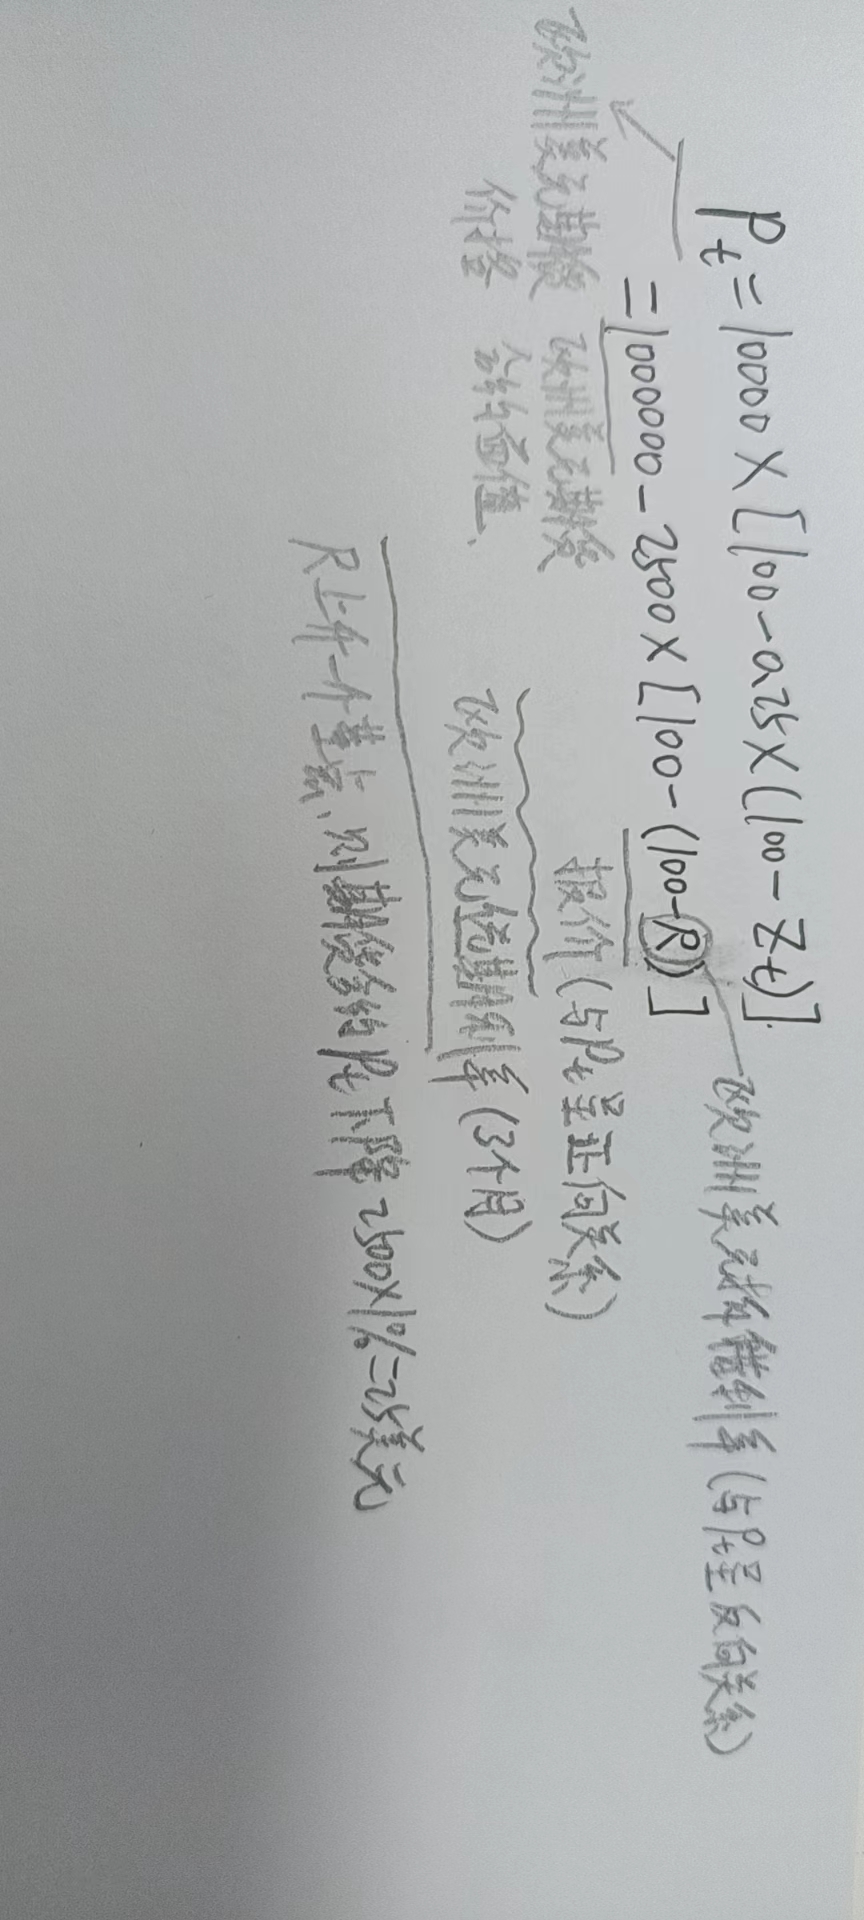 Pt=10000×[100-0.25×(100-Zt)].
=1000000-2500×[100-(100-R)]
欧洲美元拆借利率(与Pt呈反向关系)
欧洲美元期货
价格
欧洲美元期货
合约面值、
报价(与Pt呈正向关系)
欧洲美元远期利率(3个月)
R上升一个基点,则期货合约Pt下降2500×1%=25美元